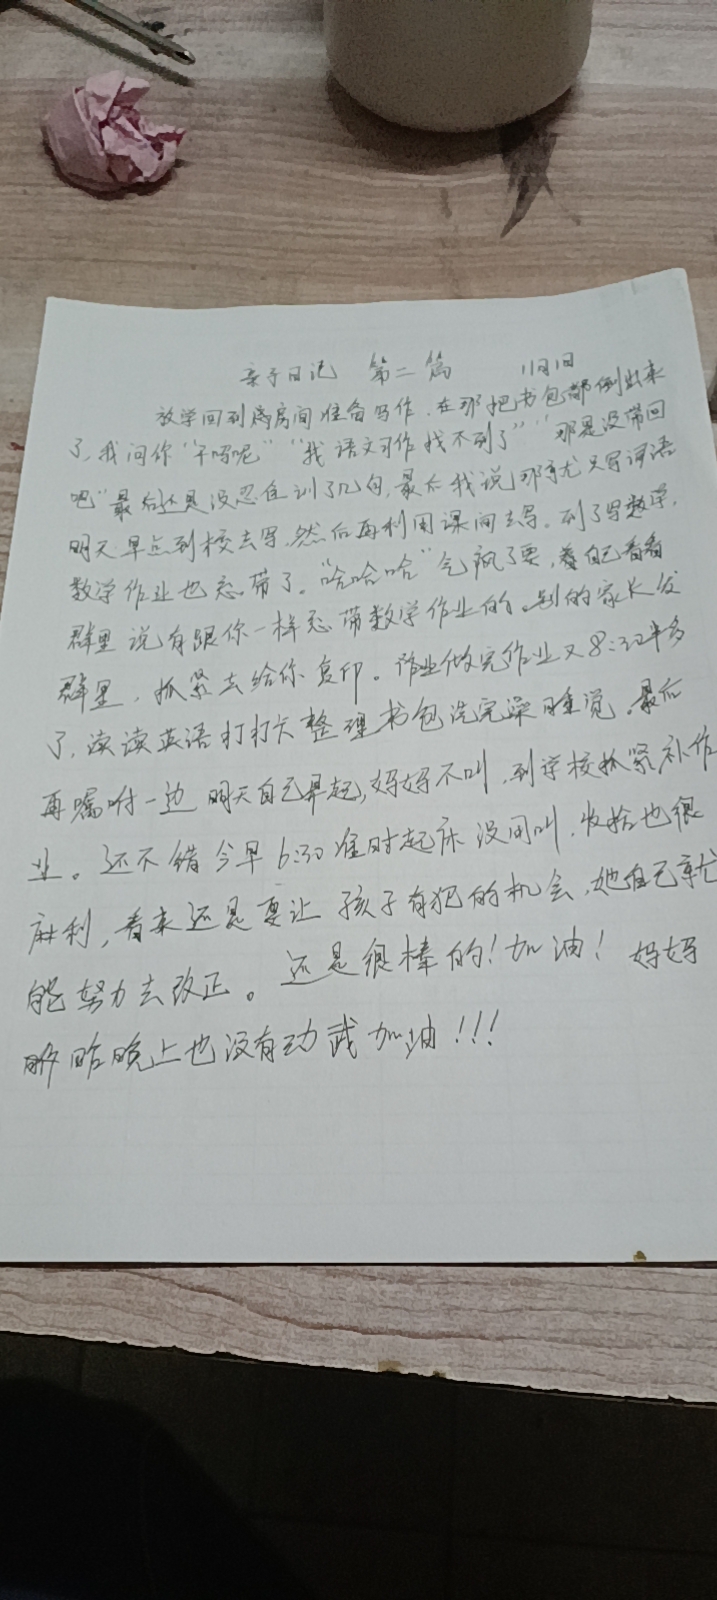 亲子日记 第二篇 11月1日
放学回到房间准备写作,在那把书包都倒出来
了,我问你“干吗呢”“我语文习作找不到了”“那是没带回
吧”最后还是没忍住训了几句,最后我说那就只写词语
明天早点到校去写,然后再利用课间去写。到了写数学,
数学作业也忘带了。“哈哈哈”气疯了要,看自己看看
群里说有跟你一样忘带数学作业的。别的家长发
群里,抓紧去给你复印。作业做完作业又8:30多
了,读读英语打打卡整理书包洗完澡睡觉。最后
再嘱咐一边明天自己早起,妈妈不叫,到学校抓紧补作
业。还不错今早6:30准时起床没用叫,收拾也很
麻利,看来还是要让孩子有犯的机会,她自己就
能努力去改正。还是很棒的!加油!妈妈
昨晚上也没有动武加油!!!